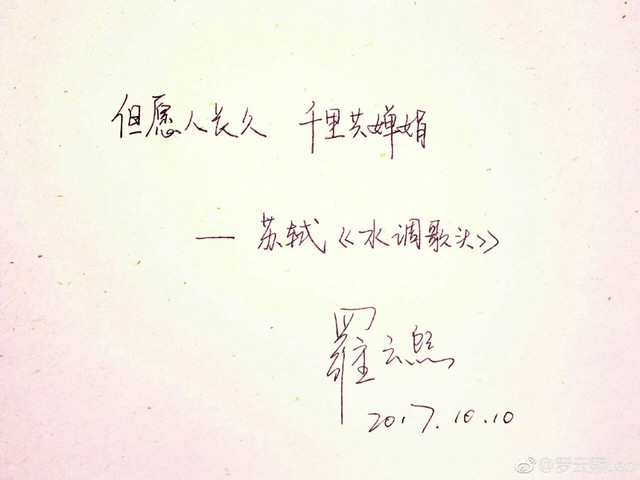 但愿人长久 千里共婵娟
— 苏轼《水调歌头》
羅云熙
2017.10.10
@罗云熙Leo